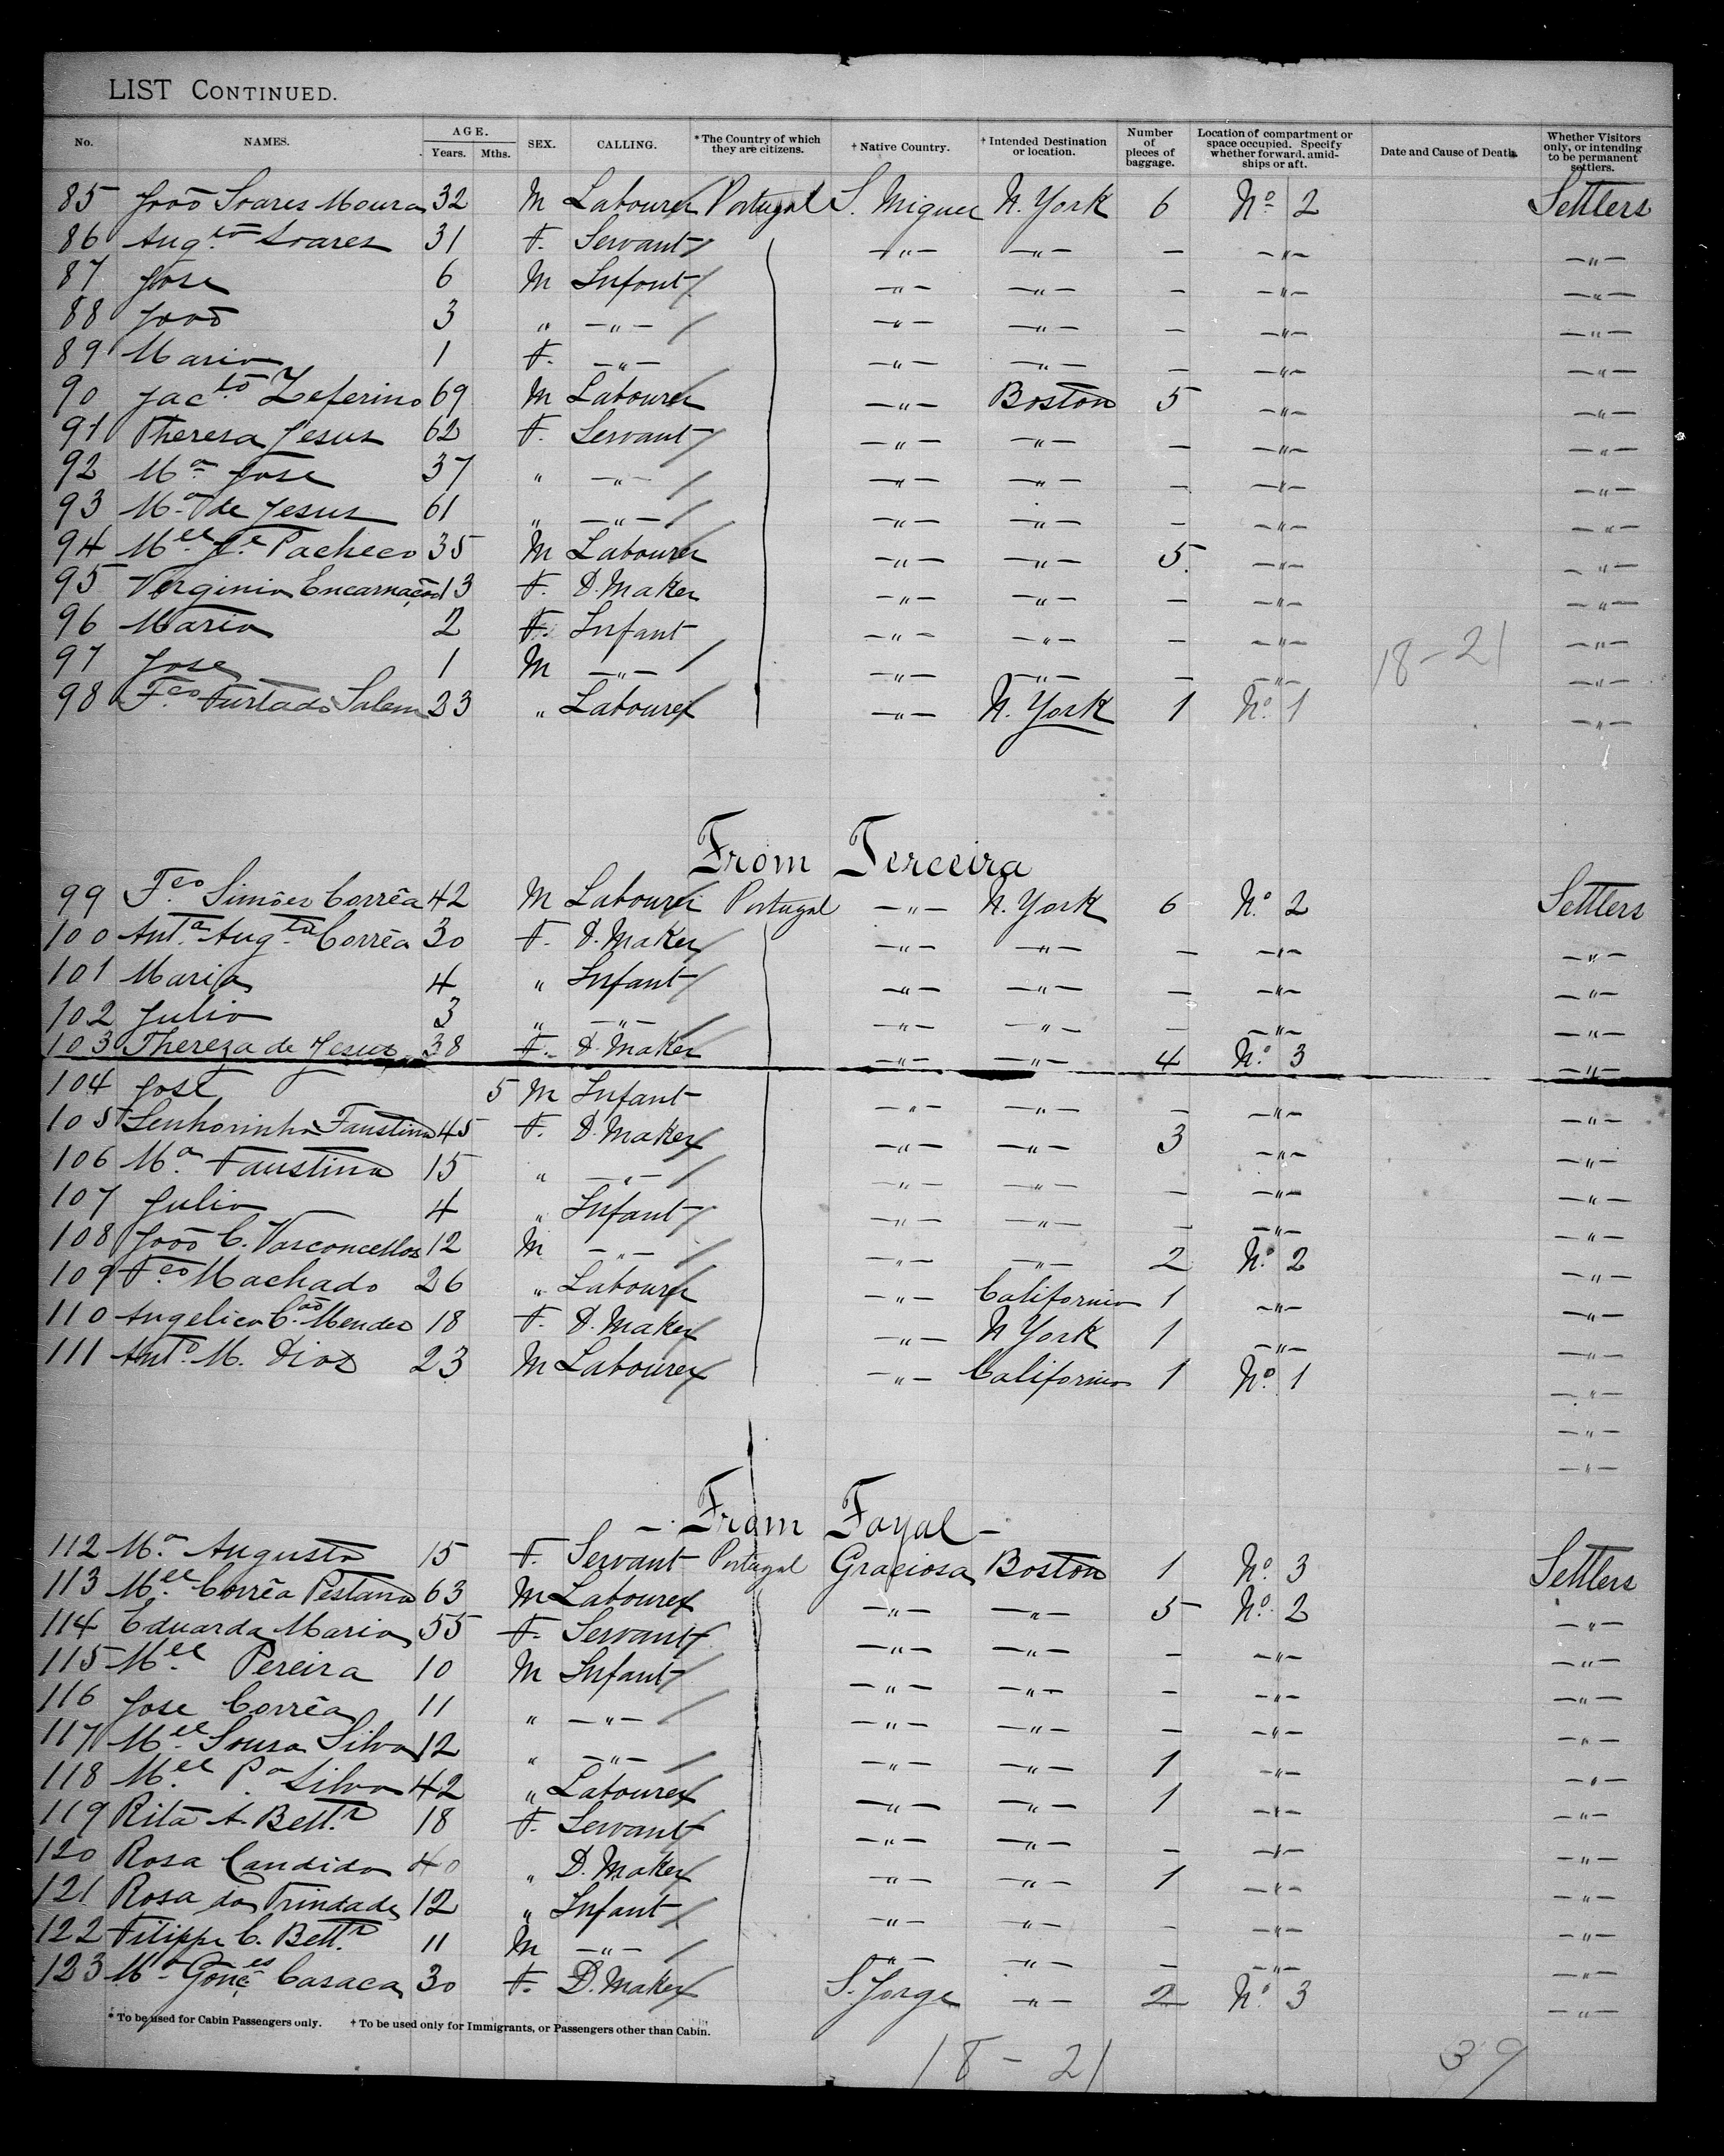 LIST CONTINUED.
No. NAMES. AGE. Years. Mths. SEX. CALLING. *The Country of which they are citizens. †Native Country. †Intended Destination or location. Number of pieces of baggage. Location of compartment or space occupied. Specify whether forward, amid-ships or aft. Date and Cause of Death. Whether Visitors only, or intending to be permanent settlers.
85 João Soares Moura 32 M Labourer Portugal S. Miguel N. York 6 No 2 Settlers
86 Aug.to Soares 31 F. Servant —"— —"— — —"— —"—
87 Jose 6 M Infant —"— —"— — —"— —"—
88 João 3 " —"— —"— —"— — —"— —"—
89 Maria 1 F. —"— —"— —"— — —"— —"—
90 Jac.to Zeferino 69 M Labourer —"— Boston 5 —"— —"—
91 Theresa Jesus 62 F. Servant —"— —"— — —"— —"—
92 Ma Jose 37 " —"— —"— —"— — —"— —"—
93 Ma de Jesus 61 " —"— —"— —"— — —"— —"—
94 Mel Je Pacheco 35 M Labourer —"— —"— 5. —"— —"—
95 Virginia Encarnação 13 F. D. Maker —"— —"— — —"— —"—
96 Maria 2 F. Infant —"— —"— — —"— —"—
97 Jose 1 M —"— —"— —"— — —"— 18-21 —"—
98 F.co Furtado Salem 23 " Labourer —"— N. York 1 No. 1 —"—
From Terceira
99 F.co Simões Corrêa 42 M Labourer Portugal —"— N. York 6 No. 2 Settlers
100 Ant.a Aug.ta Corrêa 30 F. D. Maker —"— —"— — —"— —"—
101 Maria 4 " Infant —"— —"— — —"— —"—
102 Julia 3 " —"— —"— —"— — —"— —"—
103 Thereza de Jesus 38 F. D. Maker —"— —"— 4 No. 3 —"—
104 José 5 M Infant —"— —"— — —"— —"—
105 Senhorinha Faustina 45 F. D. Maker —"— —"— 3 —"— —"—
106 Ma. Faustina 15 " —"— —"— —"— — —"— —"—
107 Julia 4 " Infant —"— —"— — —"— —"—
108 João C. Vasconcellos 12 M —"— —"— —"— 2 No. 2 —"—
109 F.co Machado 26 " Labourer —"— California 1 —"— —"—
110 Angelica C.ão Mendes 18 F. D. Maker —"— N York 1 —"— —"—
111 Anto. M. Dias 23 M Labourer —"— California 1 No. 1 —"—
—"—
—"—
—. From Fayal —
112 Ma. Augusta 15 F. Servant Portugal Graciosa Boston 1 No. 3 Settlers
113 Mel. Corrêa Pestana 63 M Labourer —"— —"— 5 No. 2 —"—
114 Eduarda Maria 55 F. Servant —"— —"— — —"— —"—
115 Mel. Pereira 10 M Infant —"— —"— — —"— —"—
116 Jose Corrêa 11 " —"— —"— —"— — —"— —"—
117 Mel. Sousa Silva 12 " —"— —"— —"— 1 —"— —"—
118 Mel. Pa. Silva 42 " Labourer —"— —"— 1 —"— —"—
119 Rita A. Bett. 18 F. Servant —"— —"— — —"— —"—
120 Rosa Candida 40 " D. Maker —"— —"— 1 —"— —"—
121 Rosa da Trindade 12 " Infant —"— —"— — —"— —"—
122 Filippe C. Bett. 11 M —"— —"— —"— — —"— —"—
123 Ma Gonc.es Casaca 30 F. D. Maker S. Jorge —"— 2 No. 3 —"—
* To be used for Cabin Passengers only. † To be used only for Immigrants, or Passengers other than Cabin.
18 - 21 39